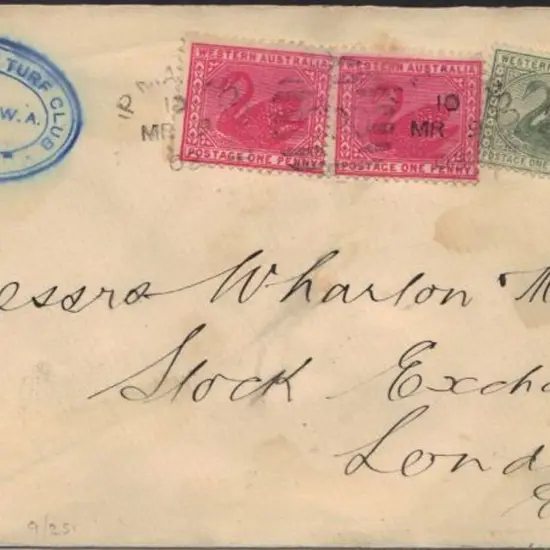 TURF CLUB
W.A.
WESTERN AUSTRALIA
POSTAGE ONE PENNY
WESTERN AUSTRALIA
POSTAGE ONE PENNY
WESTERN
POSTAGE ONE
10
MR
10
MR
essrs Wharton M
Stock Excha
Lond
9/25